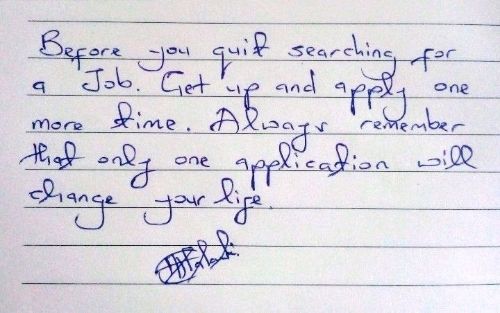 Before you quit searching for
a Job. Get up and apply one
more time. Always remember
that only one application will
change your life.